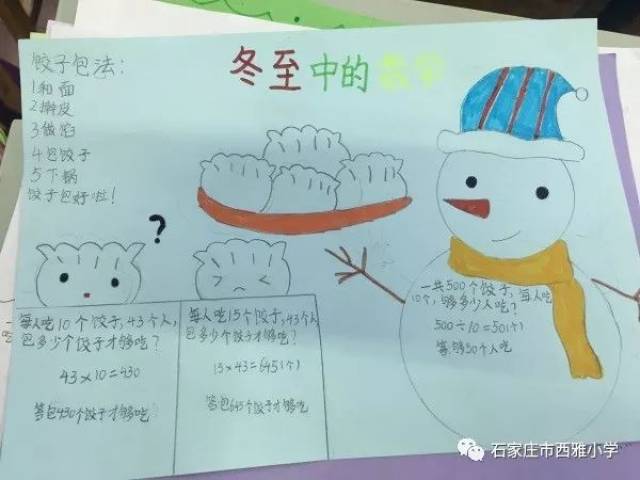 冬至中的数学
饺子包法:
1和面
2擀皮
3做馅
4包饺子
5下锅
饺子包好啦!
?
每人吃10个饺子,43个人,
包多少个饺子才够吃?
43×10=430
答包430个饺子才够吃
每人吃15个饺子,43个人
包多少个饺子才够吃?
15×43=645(个)
答包645个饺子才够吃
一共500个饺子,每人吃
10个,够多少人吃?
500÷10=50(个)
答够50个人吃
石家庄市西雅小学